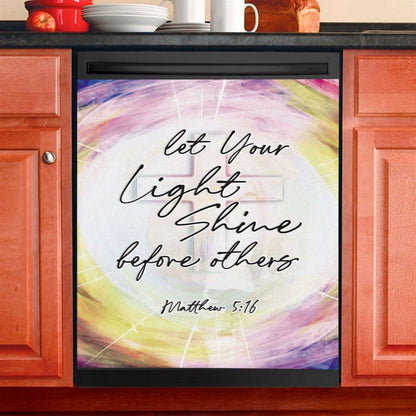 let Your
Light
Shine
before others
Matthew 5:16